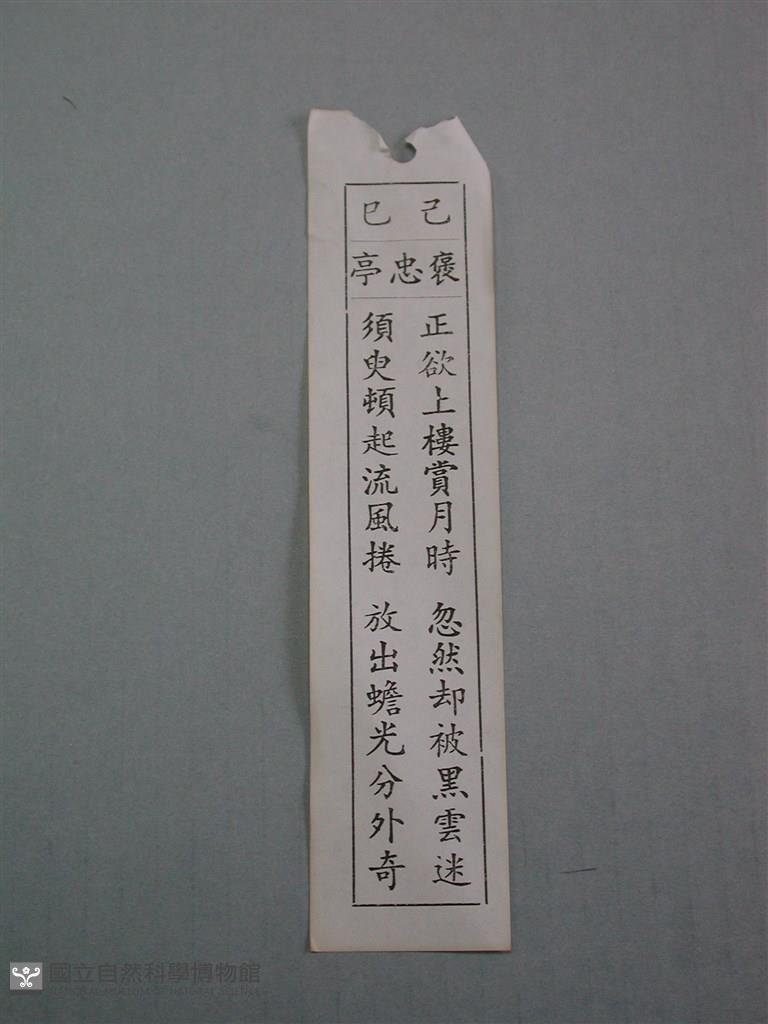 己巳
褒忠亭
正欲上樓賞月時 忽然却被黑雲迷
須臾頓起流風捲 放出蟾光分外奇
國立自然科學博物館
NATIONAL MUSEUM OF NATURAL SCIENCE